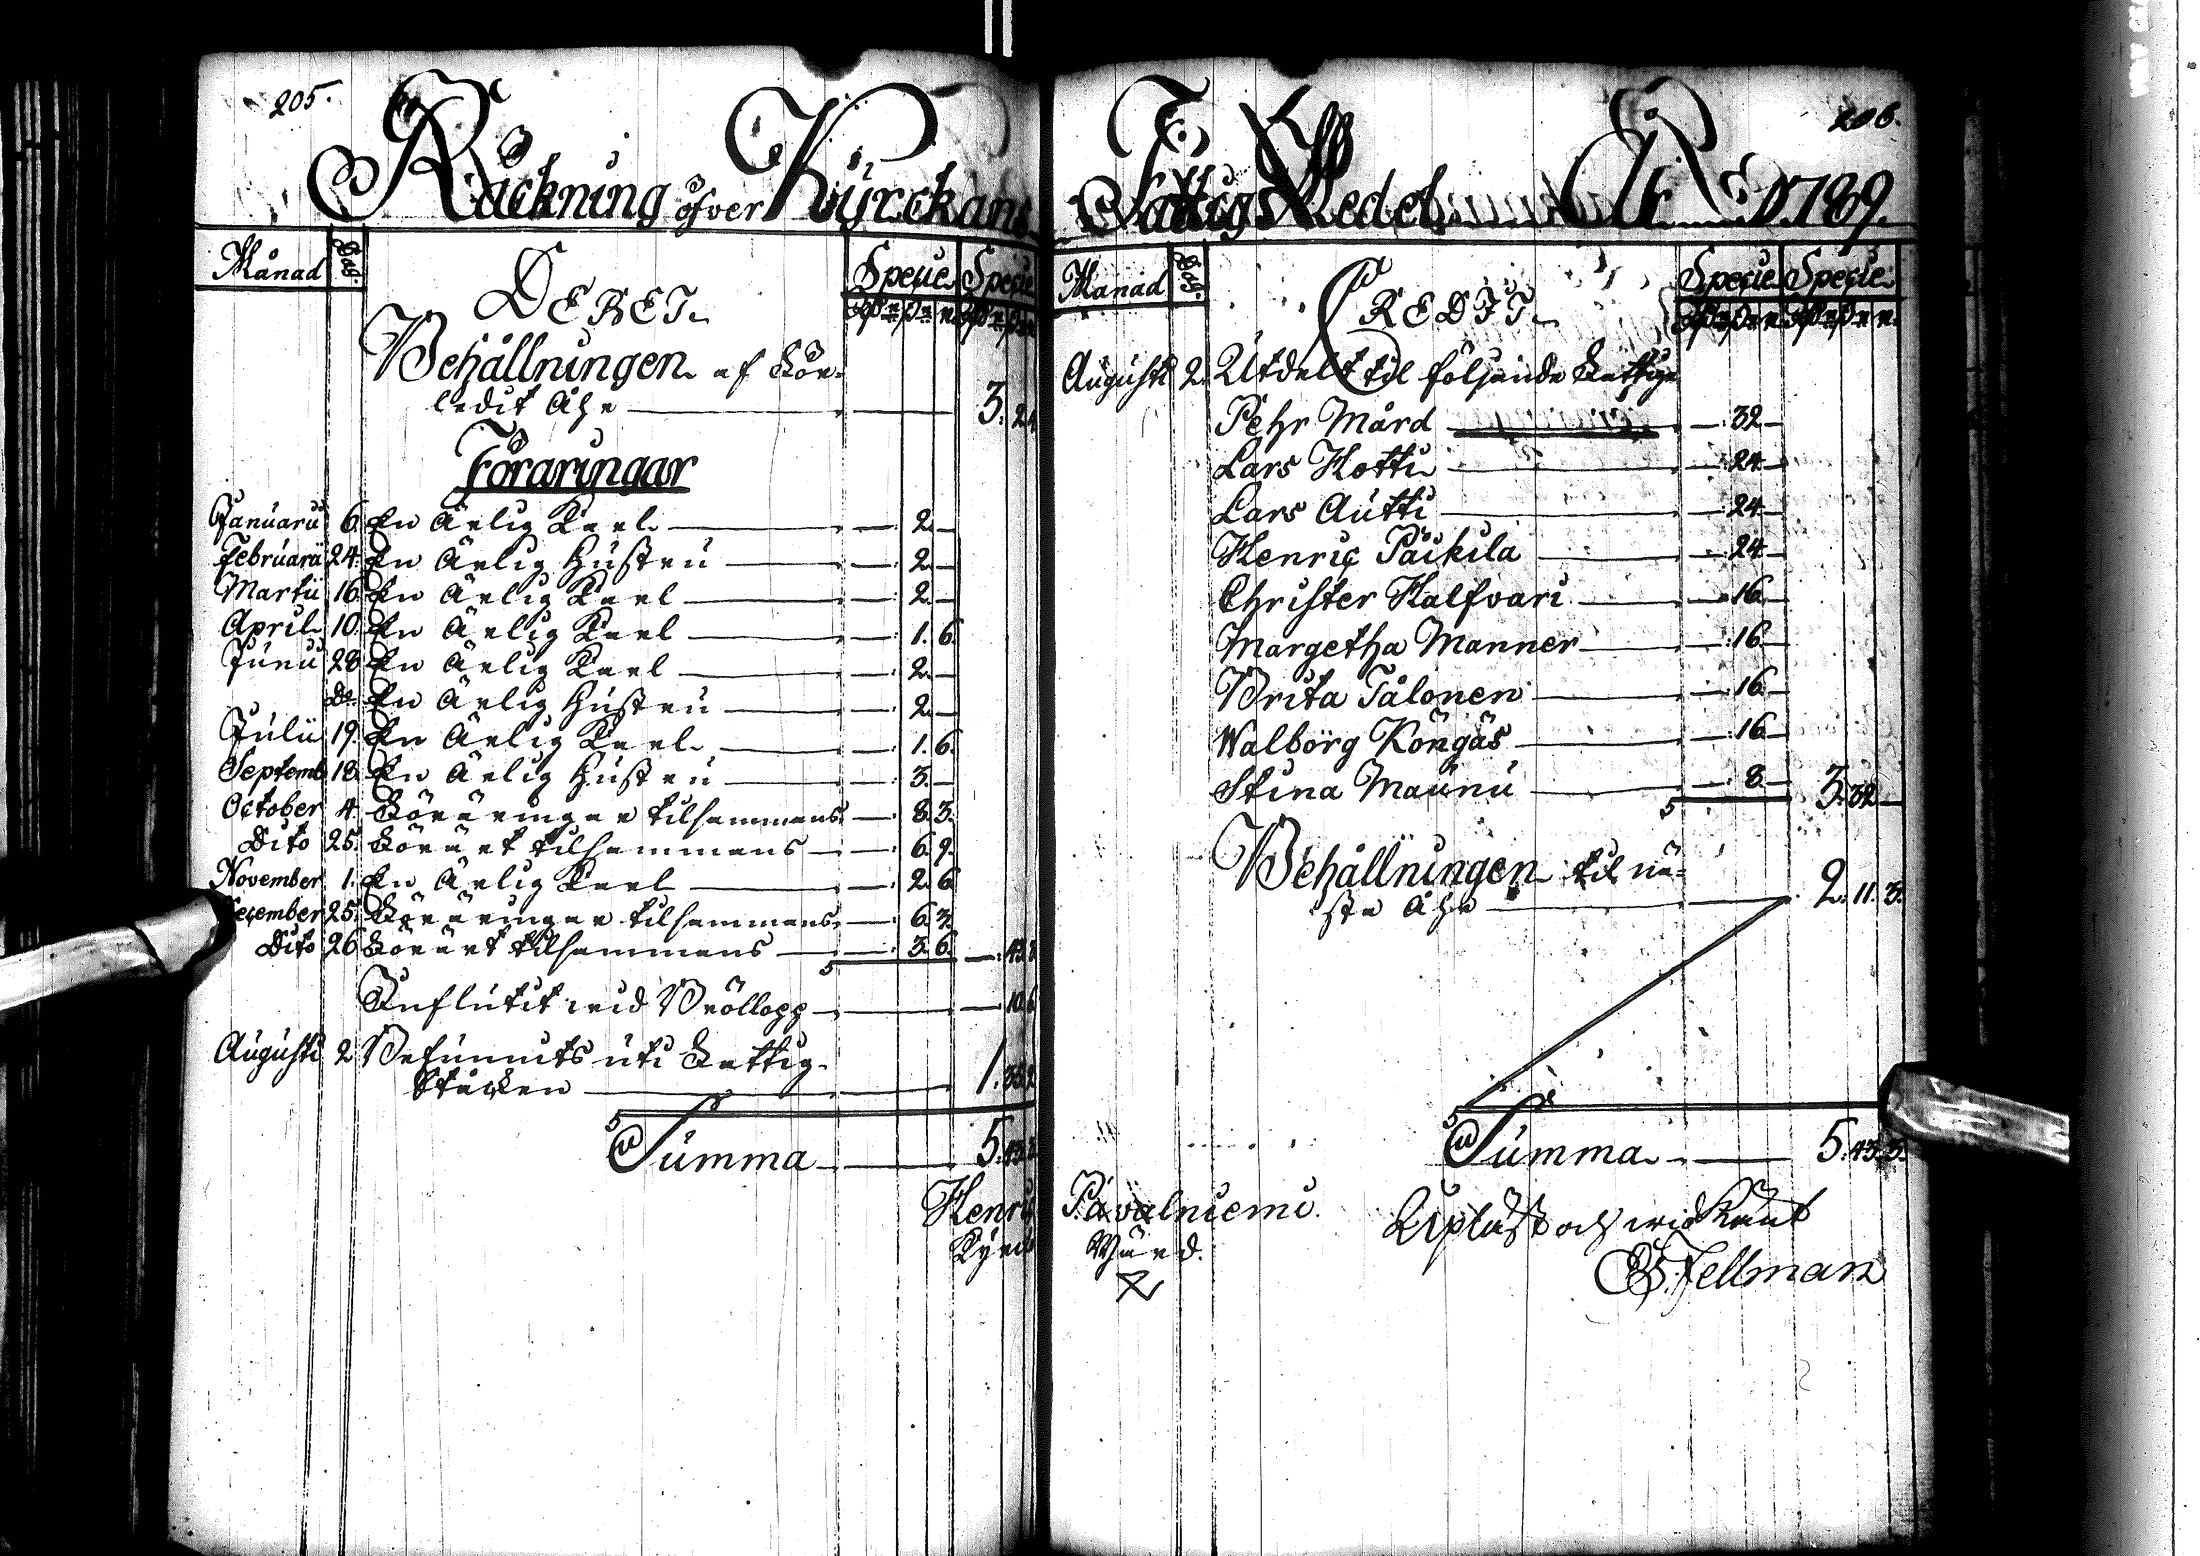 205.
Räckning öfver Kÿrckans
Månad Dag. DEBET. Specie Specie
Behållningen af För-
ledit Åhr 3. 24
Föraringar
Januarii 6. En Ärlig Karl 2.
Februarii 24. En Ärlig Hustru 2.
Martii 16. En Ärlig Karl 2.
April. 10. En Ärlig Karl 1. 6.
Junii 28. En Ärlig Karl 2.
Do En Ärlig Hustru 2.
Julii 19. En Ärlig Karl 1. 6.
Septemb. 18. En Ärlig Hustru 3.
October 4. Föräringar tilsammans 8. 3.
Dito 25. Förärt tilsammans 6. 9.
November 1. En Ärlig Karl 2. 6.
December 25. Föräringar tilsammans 6. 3.
Dito 26. Förärt tilsammans 3. 6.
Influtit wid Bröllopp 10. 6
Augusti 2. Befunnits uti Fattig-
Stäcken 1.
Summa 5.
Henric
206.
Fattigs Medel Åhr 1789.
Månad Dag. CREDIT. Specie Specie
Augusti 2. Utdelt til följande Fattige
Pehr Mård 32
Lars Hotti 24
Lars Autti 24
Henric Päikila 24
Christer Halfvari 16
Margetha Manner 16
Brita Tålonen 16
Walborg Köngäs 16
Stina Maunu 8 3. 32
Behållningen til nä-
sta Åhr 2. 11. 3.
Summa 5. 43. 3.
Påvalniemi. Upläst och wid Känt
Wärd. E. Fellman